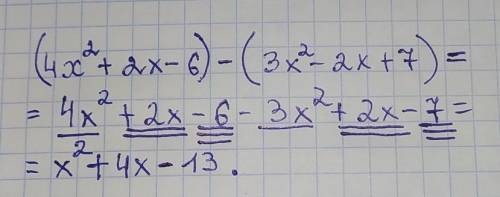 (4x²+2x-6)-(3x²-2x+7)=
=4x²+2x-6-3x²+2x-7=
=x²+4x-13.